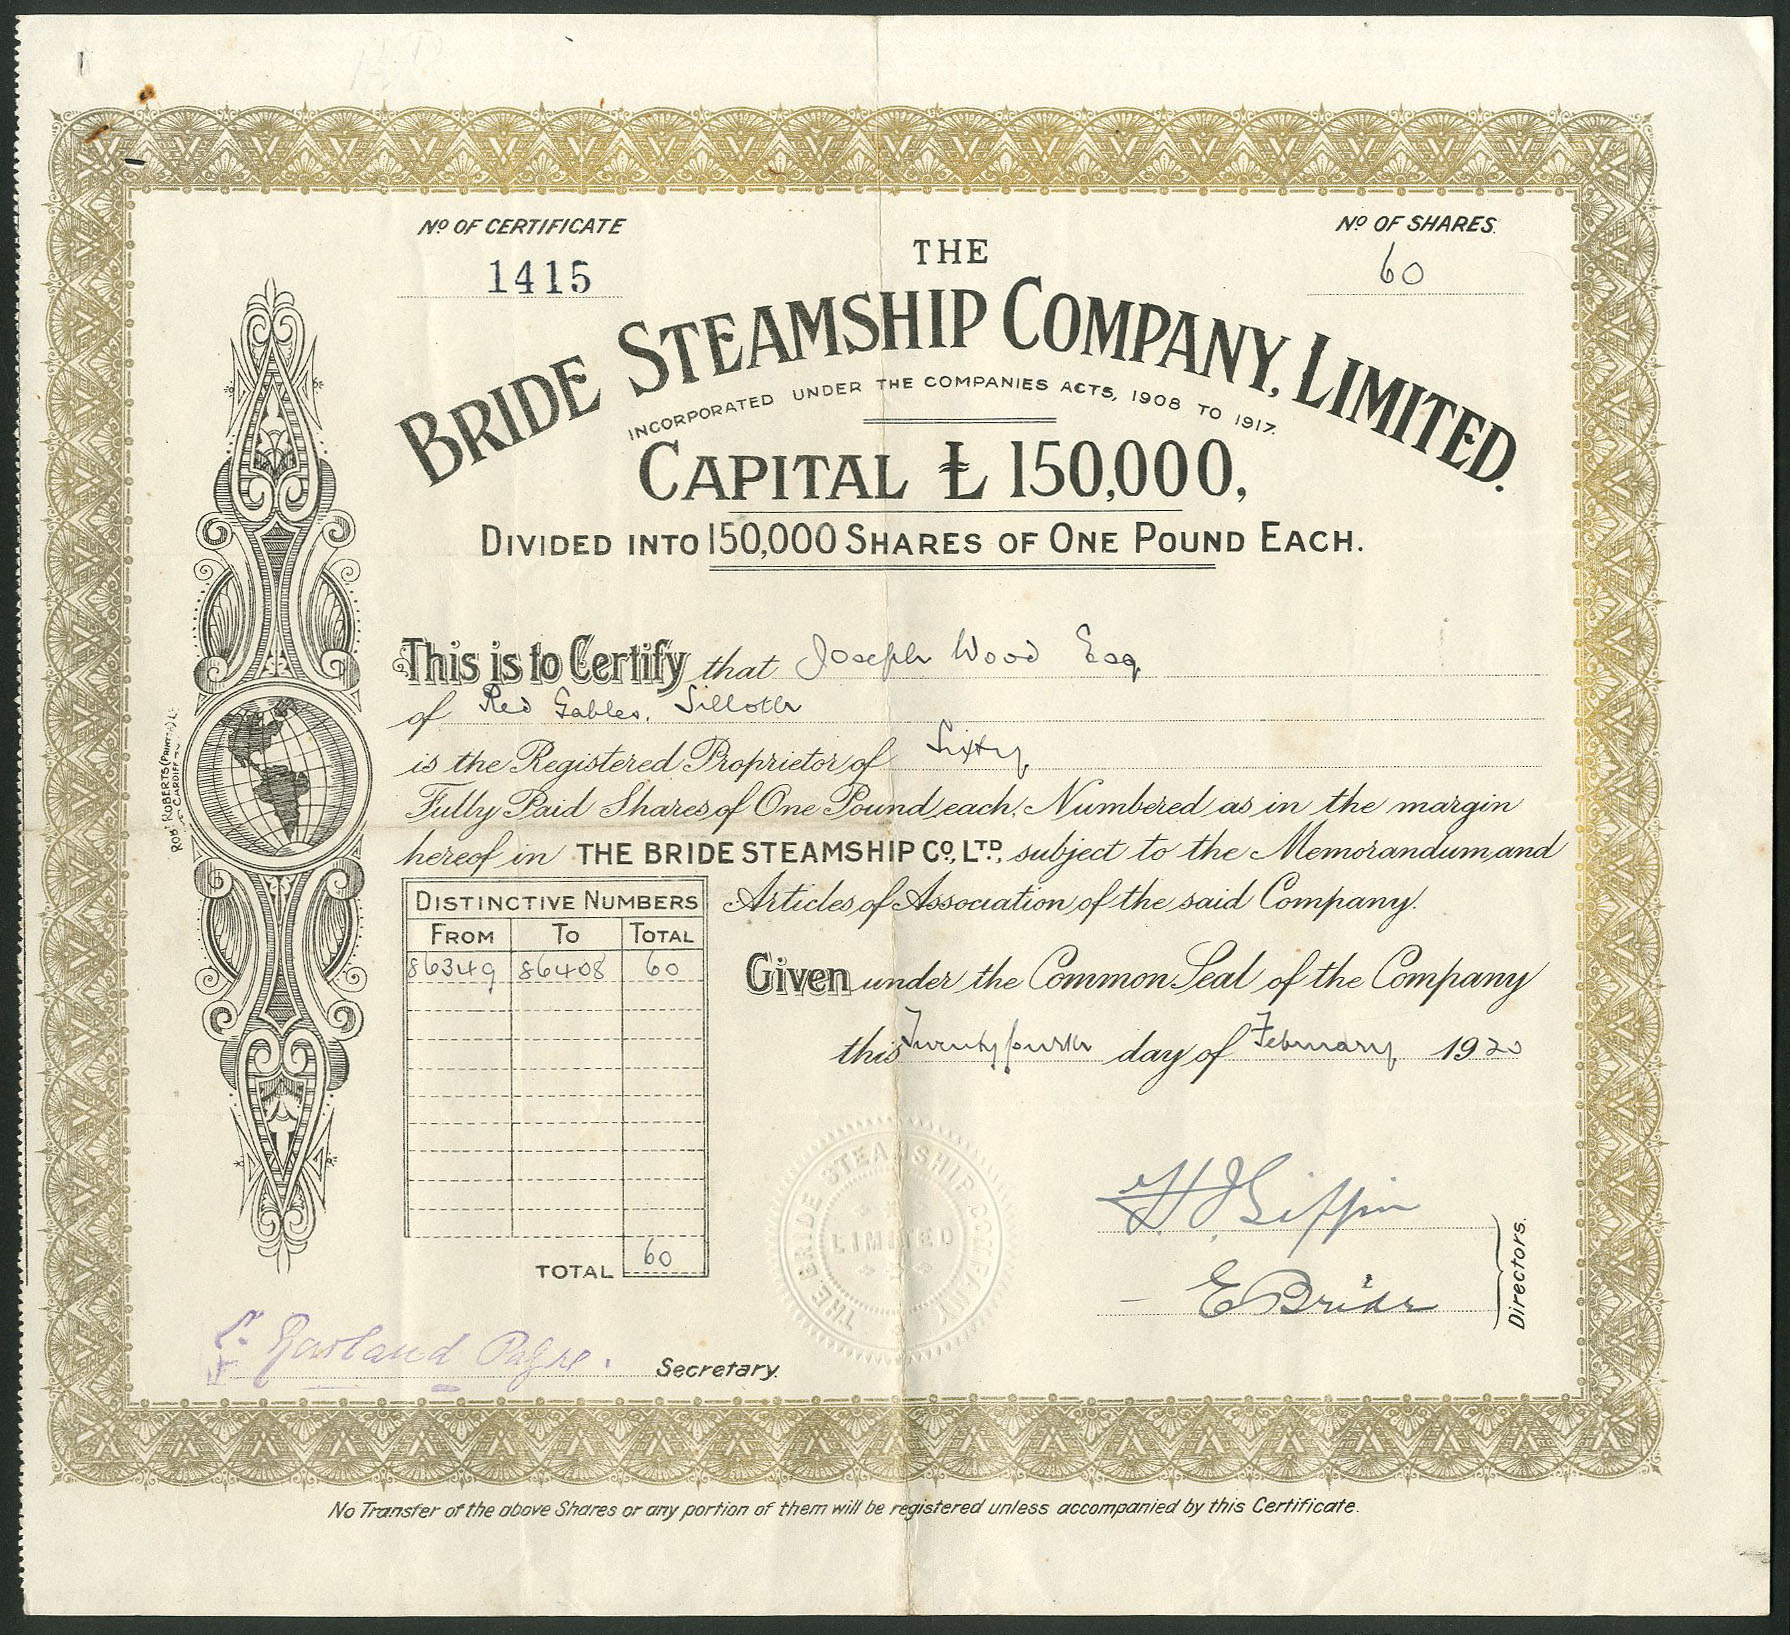 Nº OF CERTIFICATE
1415
Nº OF SHARES.
60
THE
BRIDE STEAMSHIP COMPANY, LIMITED.
INCORPORATED UNDER THE COMPANIES ACTS, 1908 TO 1917.
CAPITAL £150,000,
DIVIDED INTO 150,000 SHARES OF ONE POUND EACH.
This is to Certify that Joseph Wood Esq
of Red Gables, Silloth
is the Registered Proprietor of Sixty
Fully Paid Shares of One Pound each, Numbered as in the margin
hereof in THE BRIDE STEAMSHIP CO., LTD., subject to the Memorandum and
Articles of Association of the said Company.
DISTINCTIVE NUMBERS
FROM TO TOTAL
86349 86408 60
TOTAL 60
Given under the Common Seal of the Company
this Twenty fourth day of February 1920
THE BRIDE STEAMSHIP COMPANY
LIMITED
H J Giffin
E Bride
Directors.
Garland Secretary.
ROBT ROBERTS (PRINTERS)
CARDIFF
No Transfer of the above Shares or any portion of them will be registered unless accompanied by this Certificate.